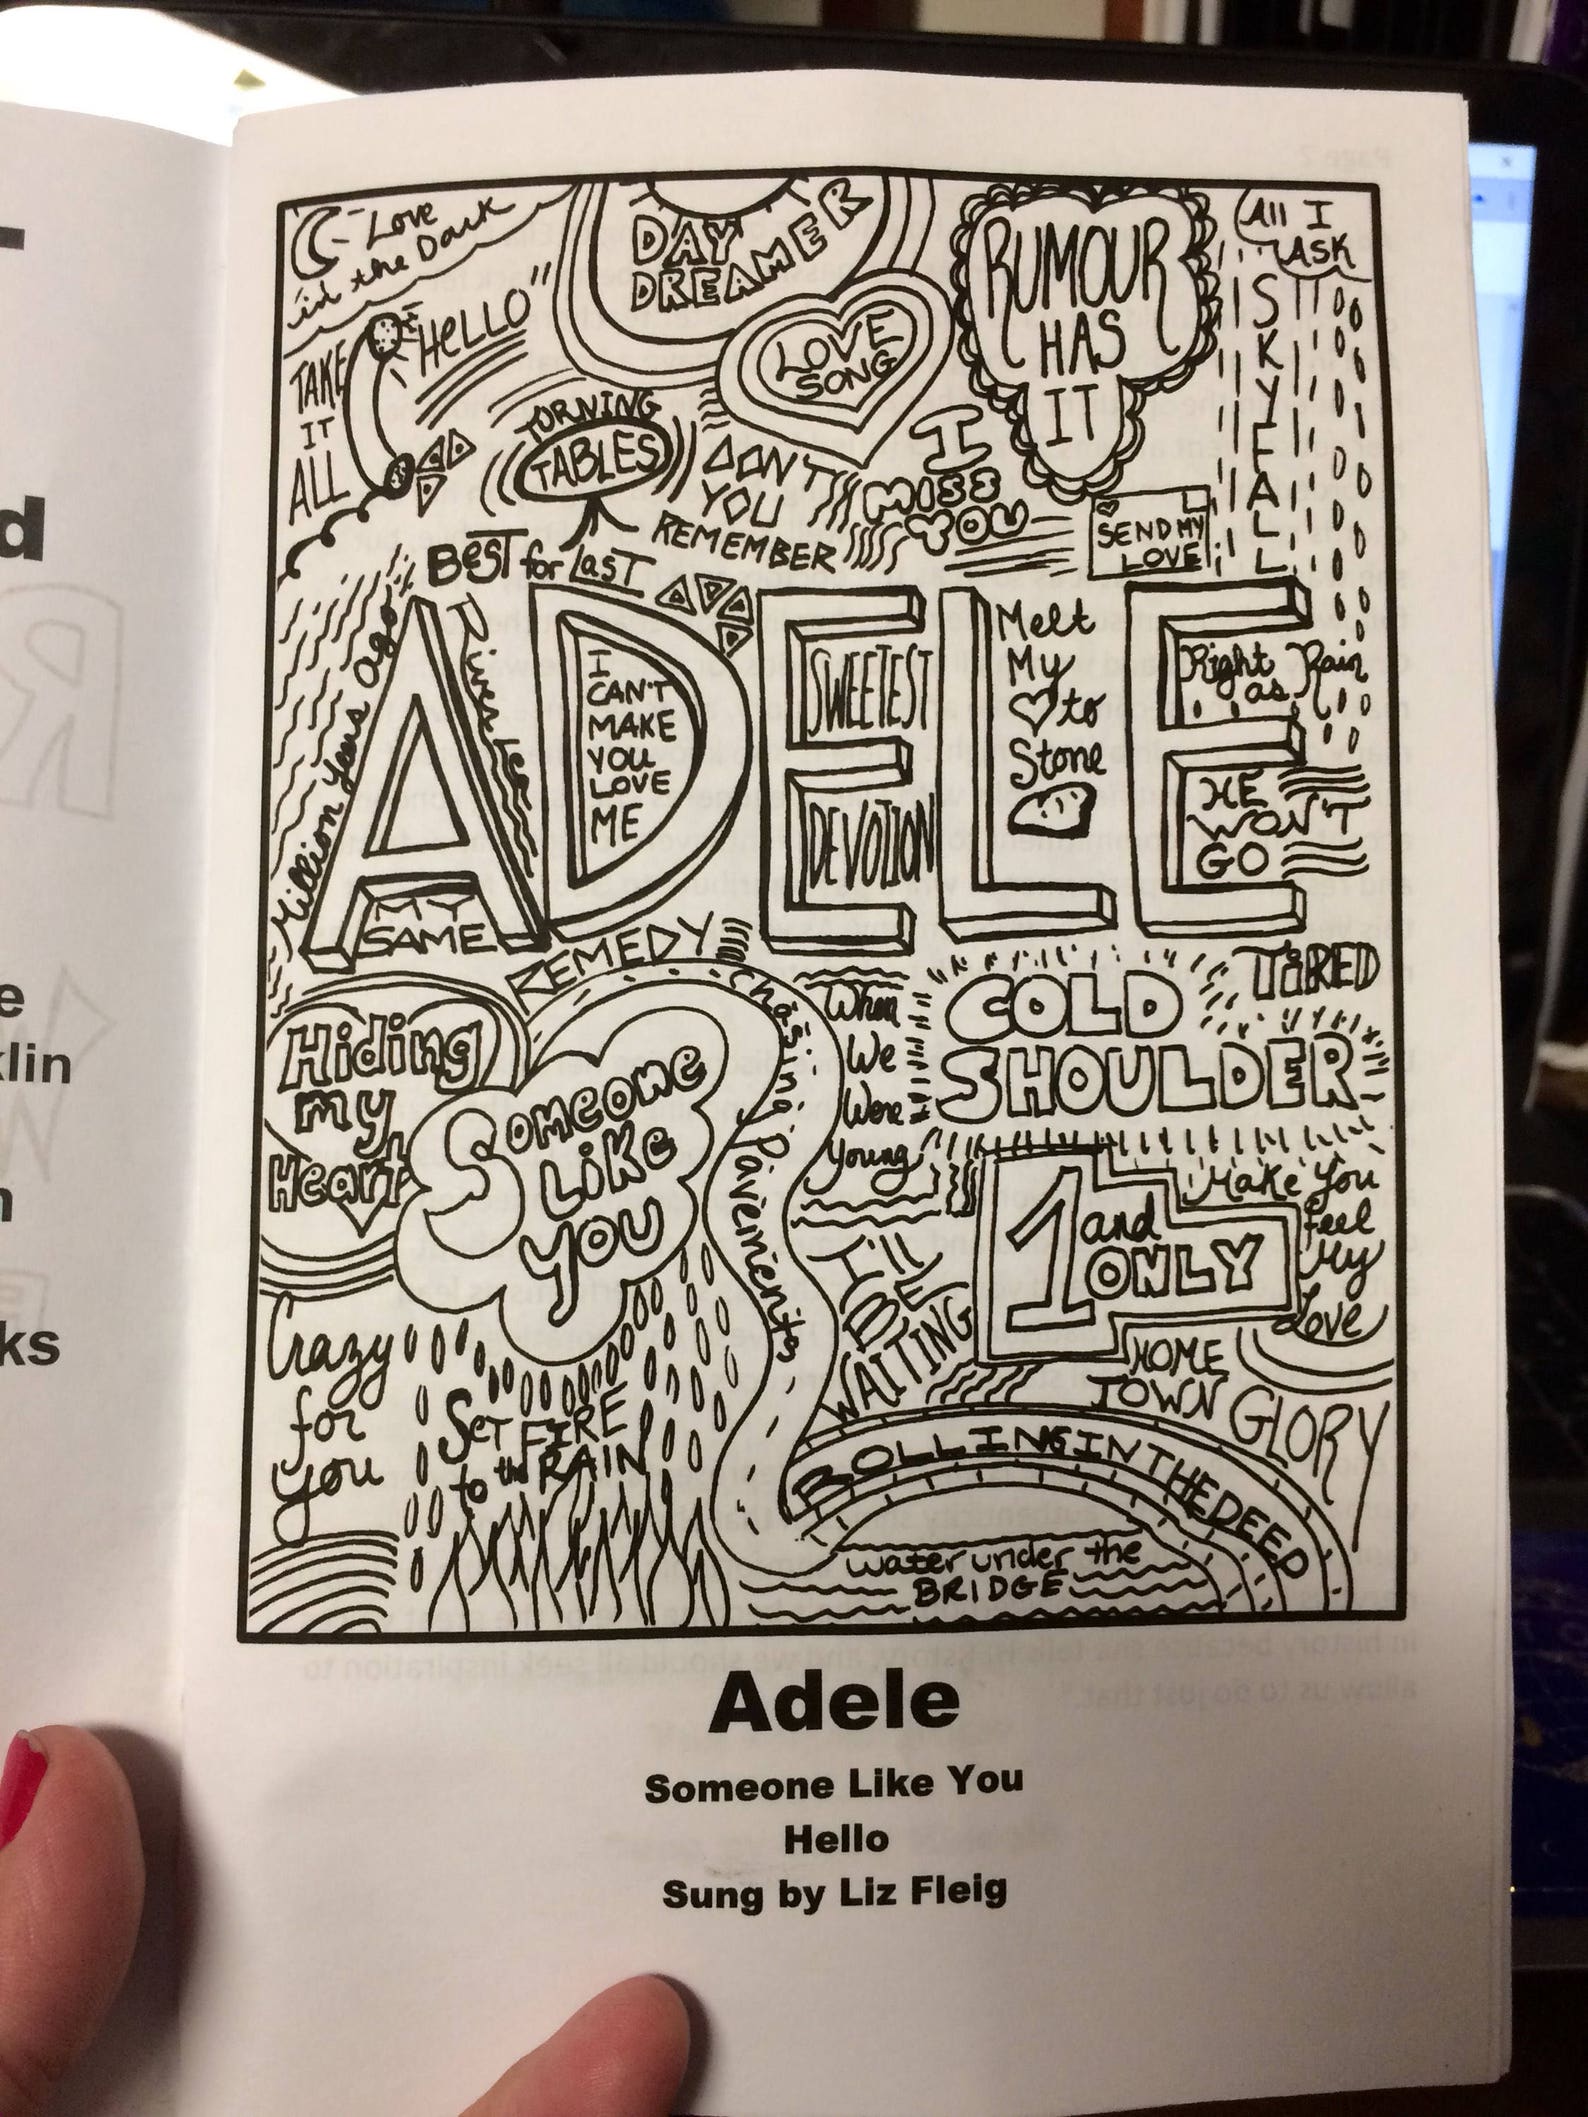 Love
in the Dark
"Hello"
TAKE
IT
ALL
DAY
DREAMER
LOVE
SONG
RUMOUR
HAS
IT
All I
ASK
SKYFALL
TURNING
TABLES
DON'T
YOU
REMEMBER
I
MISS
YOU
SEND MY
LOVE
BEST for LAST
Million Years Ago
River Lea
ADELE
I
CAN'T
MAKE
YOU
LOVE
ME
SWEETEST
DEVOTION
Melt
My
♡ to
Stone
Right as Rain
HE
WON'T
GO
MY
SAME
REMEDY
Hiding
my
Heart
SOMEONE
LIKE
YOU
Chasing Pavements
When
We
Were
Young
COLD
SHOULDER
TIRED
1 and
ONLY
Make You
Feel
My
Love
I'LL
BE
WAITING
HOME
TOWN
GLORY
Crazy
for
you
SET FIRE
to the RAIN
ROLLING IN THE DEEP
water under the
BRIDGE
Adele
Someone Like You
Hello
Sung by Liz Fleig
d
e
klin
n
ks